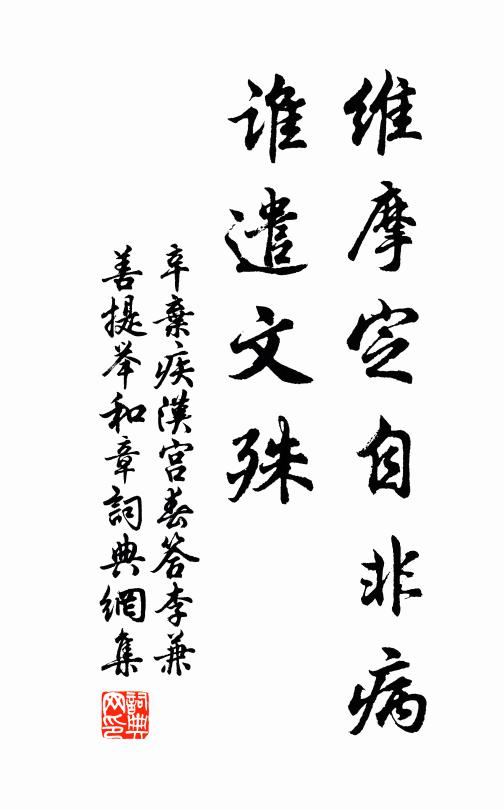 維摩定自非病
誰遣文殊
辛棄疾漢宮春答李兼
善提举和章詞典網集
詞典网印